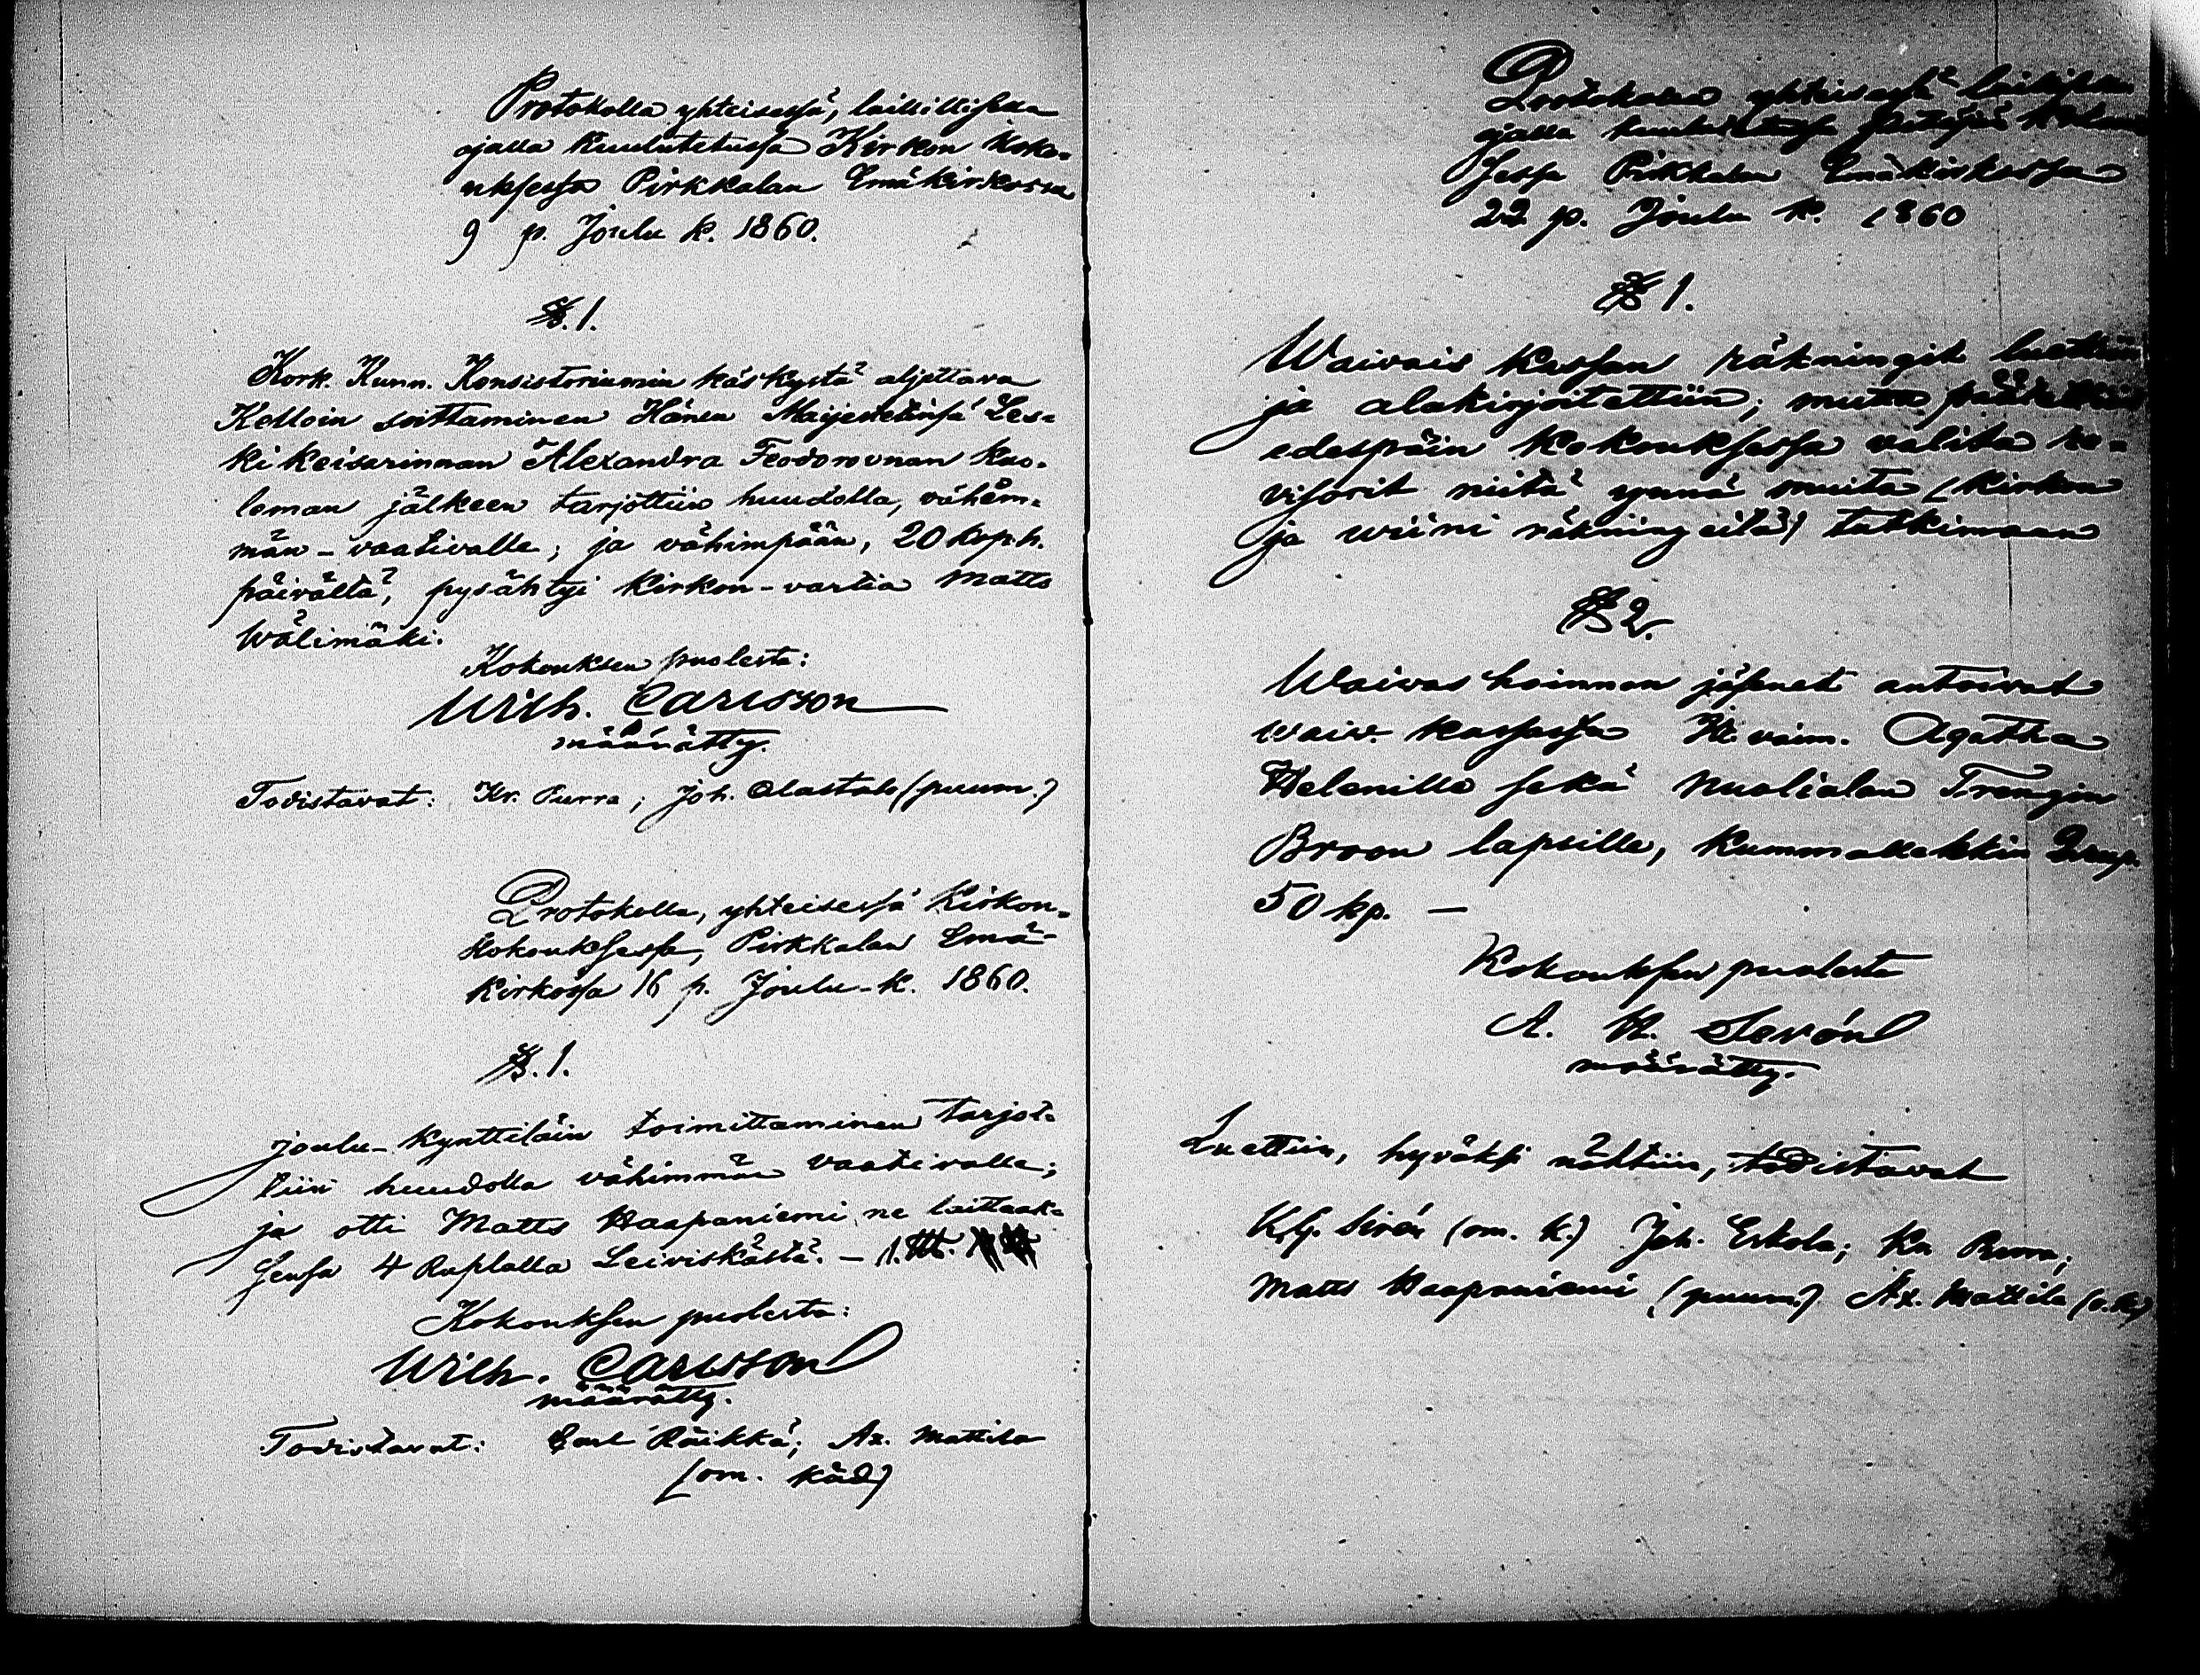 Protokolla yhteisessä, laillisessa
ajassa kuulutetussa Kirkon koko-
uksessa Pirkkalan Emäkirkossa
9 p. Joulu k. 1860.
§. 1.
Kork. Kunn. Konsistoriumin käskystä aljettava
Kelloin soittaminen Hänen Maijestetinsä Les-
ki keisarinnan Alexandra Feodorovnan kuo-
leman jälkeen tarjottiin huudolla, vähem-
män-vaativalle; ja vähimpään, 20 kop. h.
päivältä, pysähtyi Kirkon-vartia Matts
Wälimäki.
Kokouksen puolesta:
Wilh. Carlsson
määrätty.
Todistavat: Kr. Purra; Joh. Alastalo (puum.)
Protokolla, yhteisessä Kirkon-
kokouksessa, Pirkkalan Emä-
kirkossa 16 p. Joulu-k. 1860.
§. 1.
Joulu-kynttiläin toimittaminen tarjot-
tiin huudolla vähimmän vaativalle;
ja otti Matts Haapaniemi ne laittaak-
sensa 4 Ruplalla Leiviskästä. —
Kokouksen puolesta:
Wilh. Carlsson
määrätty.
Todistavat: Carl Räikkä; Ax. Mattila
(om. käd)
Protokolla yhteisessä laillisessa
ajassa kuulutetussa pitäjän kokouk-
sessa Pirkkalan Emäkirkossa
22 p. Joulu k. 1860
§ 1.
Waivais kassan räkningit luettiin
ja alakirjoitettiin; mutta päätettiin
edespäin kokouksessa valita re-
visorit niitä ynnä muita (kirkon
ja wiini räkningeitä) tutkimaan
§ 2.
Waivas hoinnon jäsenet antoivat
waiw. kassasta It. vaim. Agatha
Helenille sekä Nuolialan Trengin
Broon lapsille, kummallekkin 2 rup.
50 kp. —
Kokouksen puolesta
A. H. Sevón
määrätty.
Luettiin, hyväksi nähtiin, todistavat
K. G. Sirén (om. k.) Joh. Eskola; Kr. Purra;
Matts Haapaniemi (puum.) Ax. Mattila (o. k.)